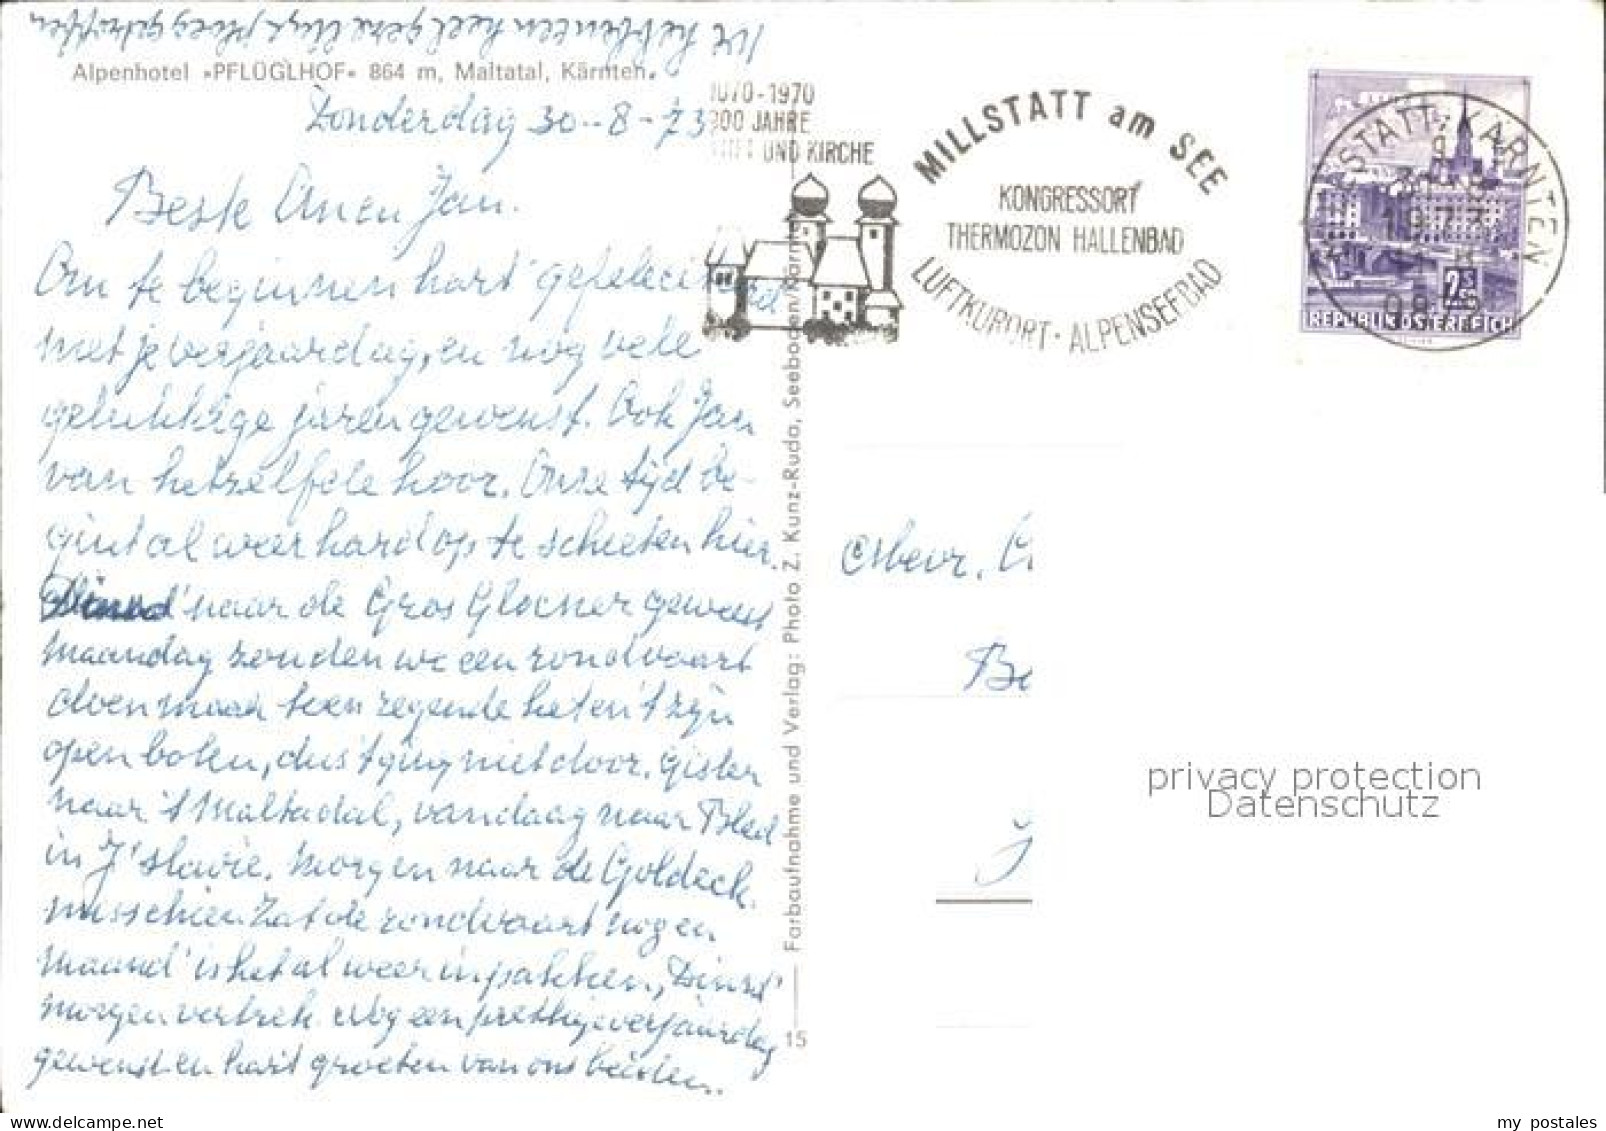 We hebben een heel gezellige ploeg getroffen
Alpenhotel »PFLÜGLHOF« 864 m, Maltatal, Kärnten.
Donderdag 30-8-73
Beste Anen Jan.
Om te beginnen hart' gefeleciteerd
met je verjaardag, en nog vele
gelukkige jaren gewenst. Ook Jan
van hetzelfde hoor. Onze tijd be-
gint al weer hard op te schieten hier.
Dinsd' naar de Gros Glocner geweest
maandag zouden we een rondvaart
doen maar toen regende het en 't zijn
open boten, dus 't ging niet door. gister
naar 't Maltadal, vandaag naar Bled
in J'slavie. Morgen naar de Goldeck.
misschien Zat de rondvaart nog en
maand' is het al weer inpakken, Dinsd'
morgen vertrek. Nog een prettige verjaardag
gewenst en hart groeten van ons beiden..
1070-1970
900 JAHRE
STIFT UND KIRCHE
MILLSTATT am SEE
KONGRESSORT
THERMOZON HALLENBAD
LUFTKURORT · ALPENSEEBAD
MILLSTATT, KÄRNTEN
1973
REPUBLIK ÖSTERREICH
Farbaufnahme und Verlag: Photo Z. Kunz-Ruda, Seeboden/Kärnten
15
privacy protection
Datenschutz
my postales